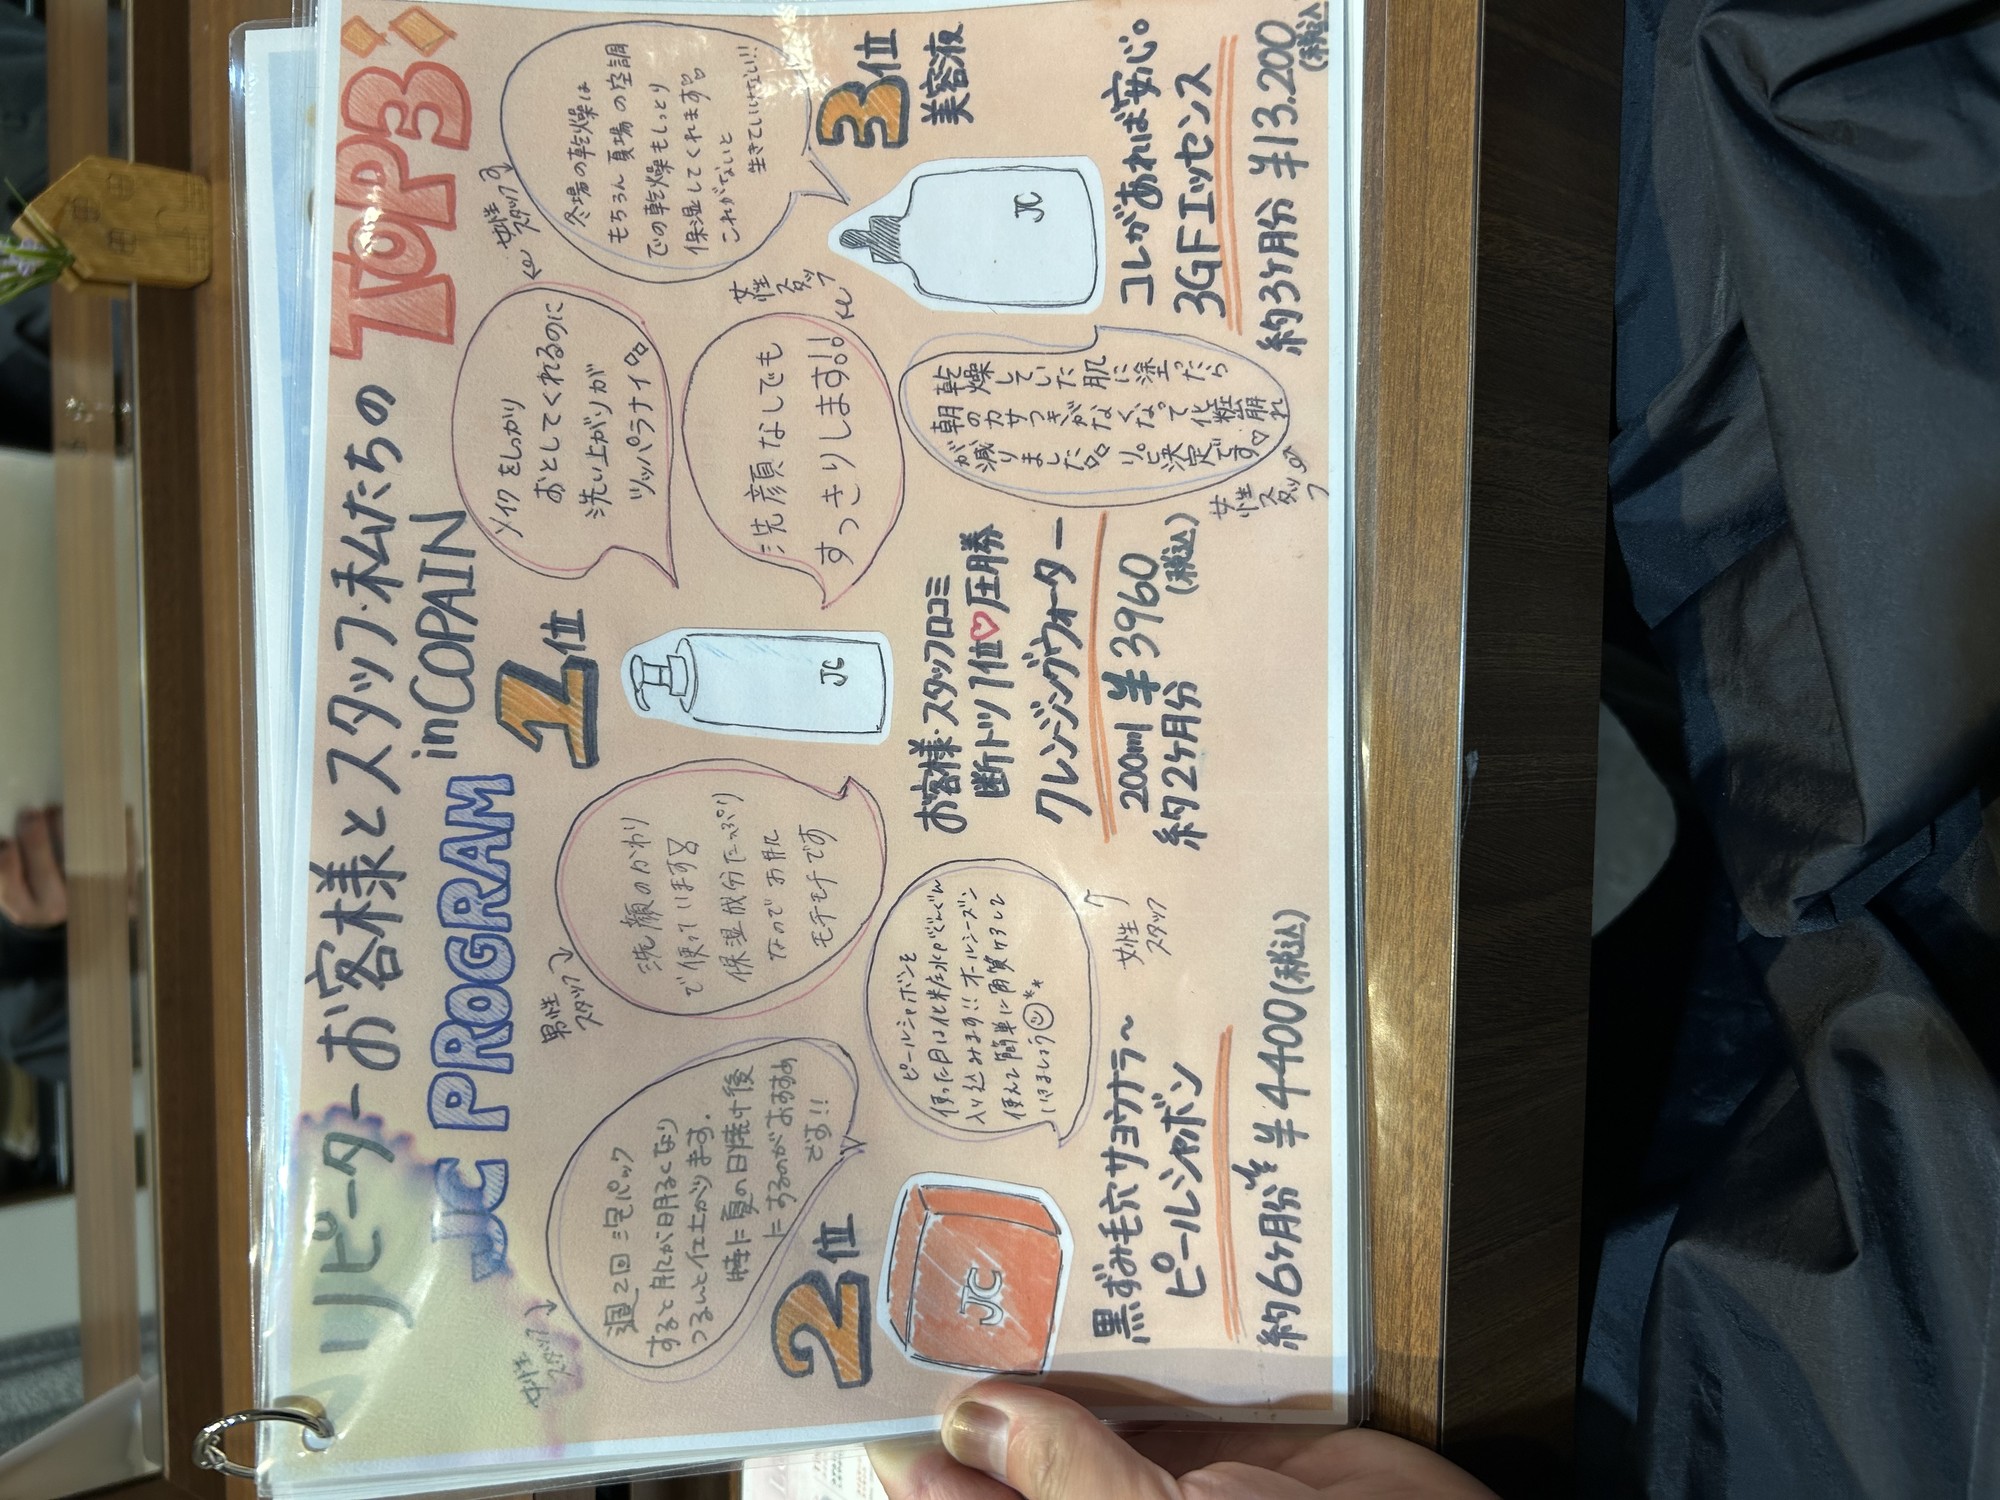 リピーターお客様とスタッフ・私たちの
JC PROGRAM in COPAIN
TOP3
1位
お客様・スタッフ口コミ
断トツ1位♡圧勝
クレンジングウォーター
200ml ¥3960
(税込)
約2ヶ月分
男性
スタッフ
洗顔のかわり
で使っています
保湿成分たっぷり
なのでお肌
モチモチです
メイクをしっかり
おとしてくれるのに
洗い上がりが
ツッパラナイ
女性
スタッフ
洗顔なしでも
すっきりします!!
女性
スタッフ
2位
JC
黒ずみ毛穴サヨウナラ〜
ピールシャボン
約6ヶ月分 ¥4400(税込)
スタッフ
週2回 泡パック
すると肌が明るくなり
つるんと仕上がります.
特に夏の日焼け後
にするのがおすすめ
です!!
ピールシャボンを
使った日は化粧水がぐんぐん
入り込みます!! オールシーズン
使えて簡単に角質ケアして
いきましょう
女性
スタッフ
3位
美容液
JC
コレがあれば安心。
3GFエッセンス
約3ヶ月分 ¥13.200
(税込)
女性
スタッフ
冬場の乾燥は
もちろん 夏場の空調
での乾燥もしっとり
保湿してくれます
これがないと
生きていけない!!
乾燥していた肌に塗ったら
朝のカサつきがなくなって化粧崩れ
が減りました リピ決定です♡
女性
スタッフ
JC